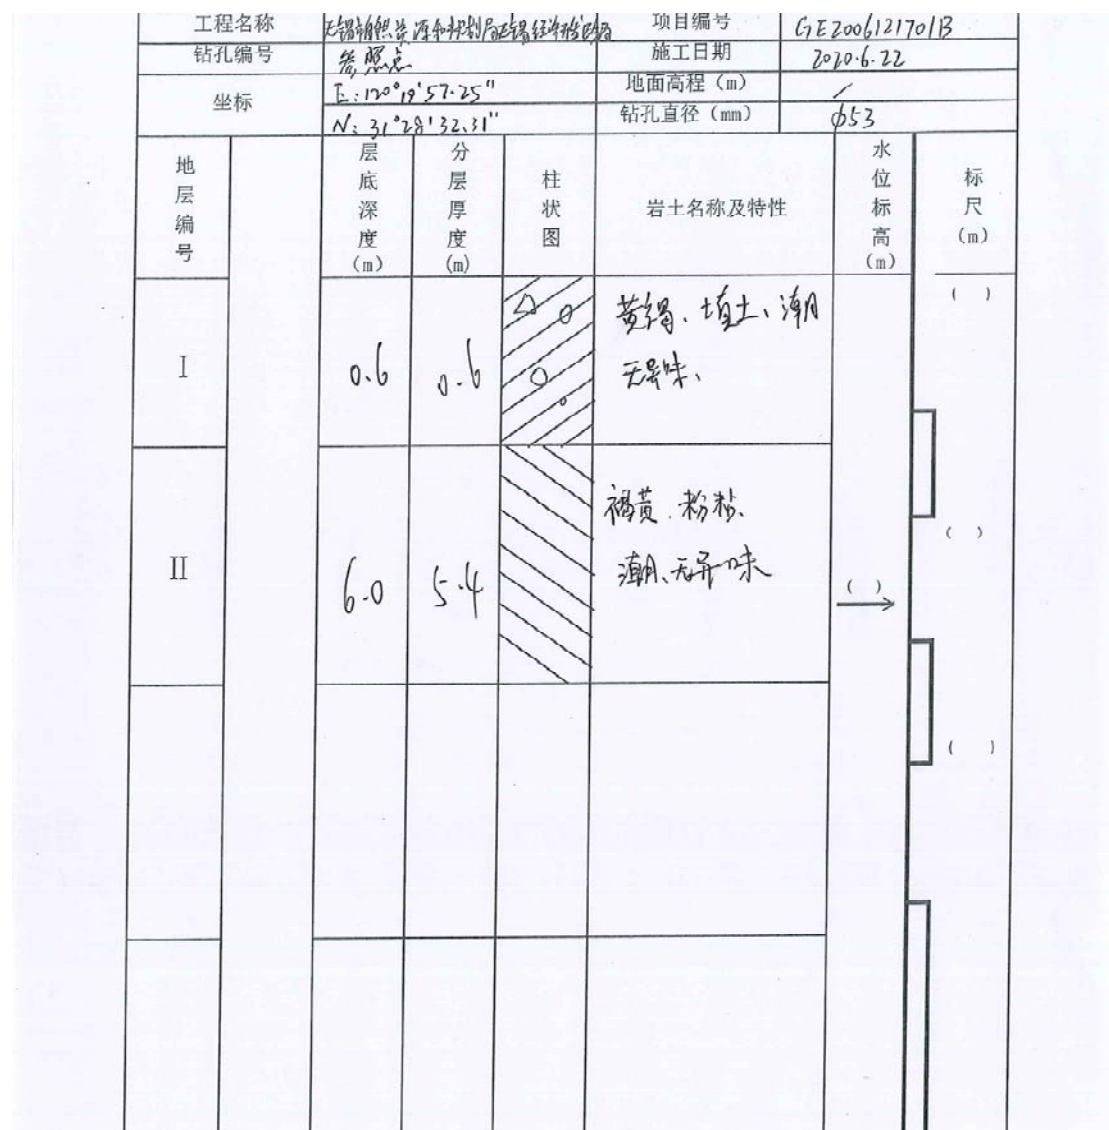 工程名称 无锡市自然资源和规划局无锡经济开发区分局 项目编号 GE2006121701B
钻孔编号 参照点 施工日期 2020.6.22
坐标 E:120°19'57.25" 地面高程（m） /
N:31°28'32.31" 钻孔直径（mm） ϕ53
地层编号 层底深度(m) 分层厚度(m) 柱状图 岩土名称及特性 水位标高(m) 标尺(m)
( )
I 0.6 0.6 黄褐、填土、潮
无异味、
( )
II 6.0 5.4 褐黄、粉粘、
潮、无异味
( )
( )